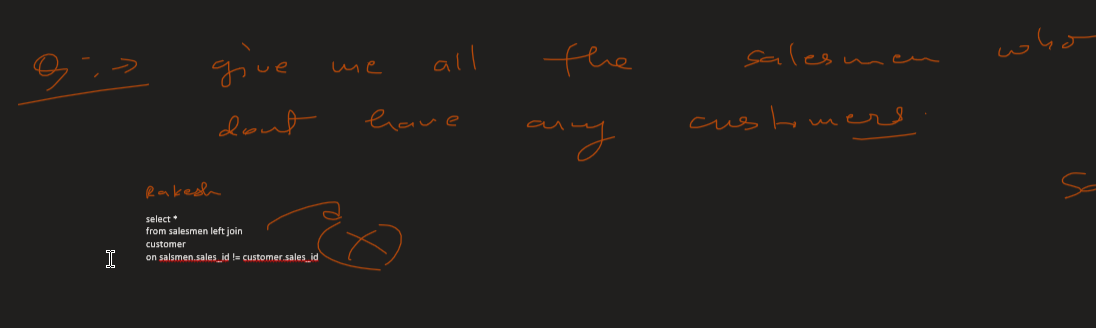 Q:⇒ give me all the salesmen who
dont have any customers.
Rakesh
select *
from salesmen left join
customer
on salsmen.sales_id != customer.sales_id